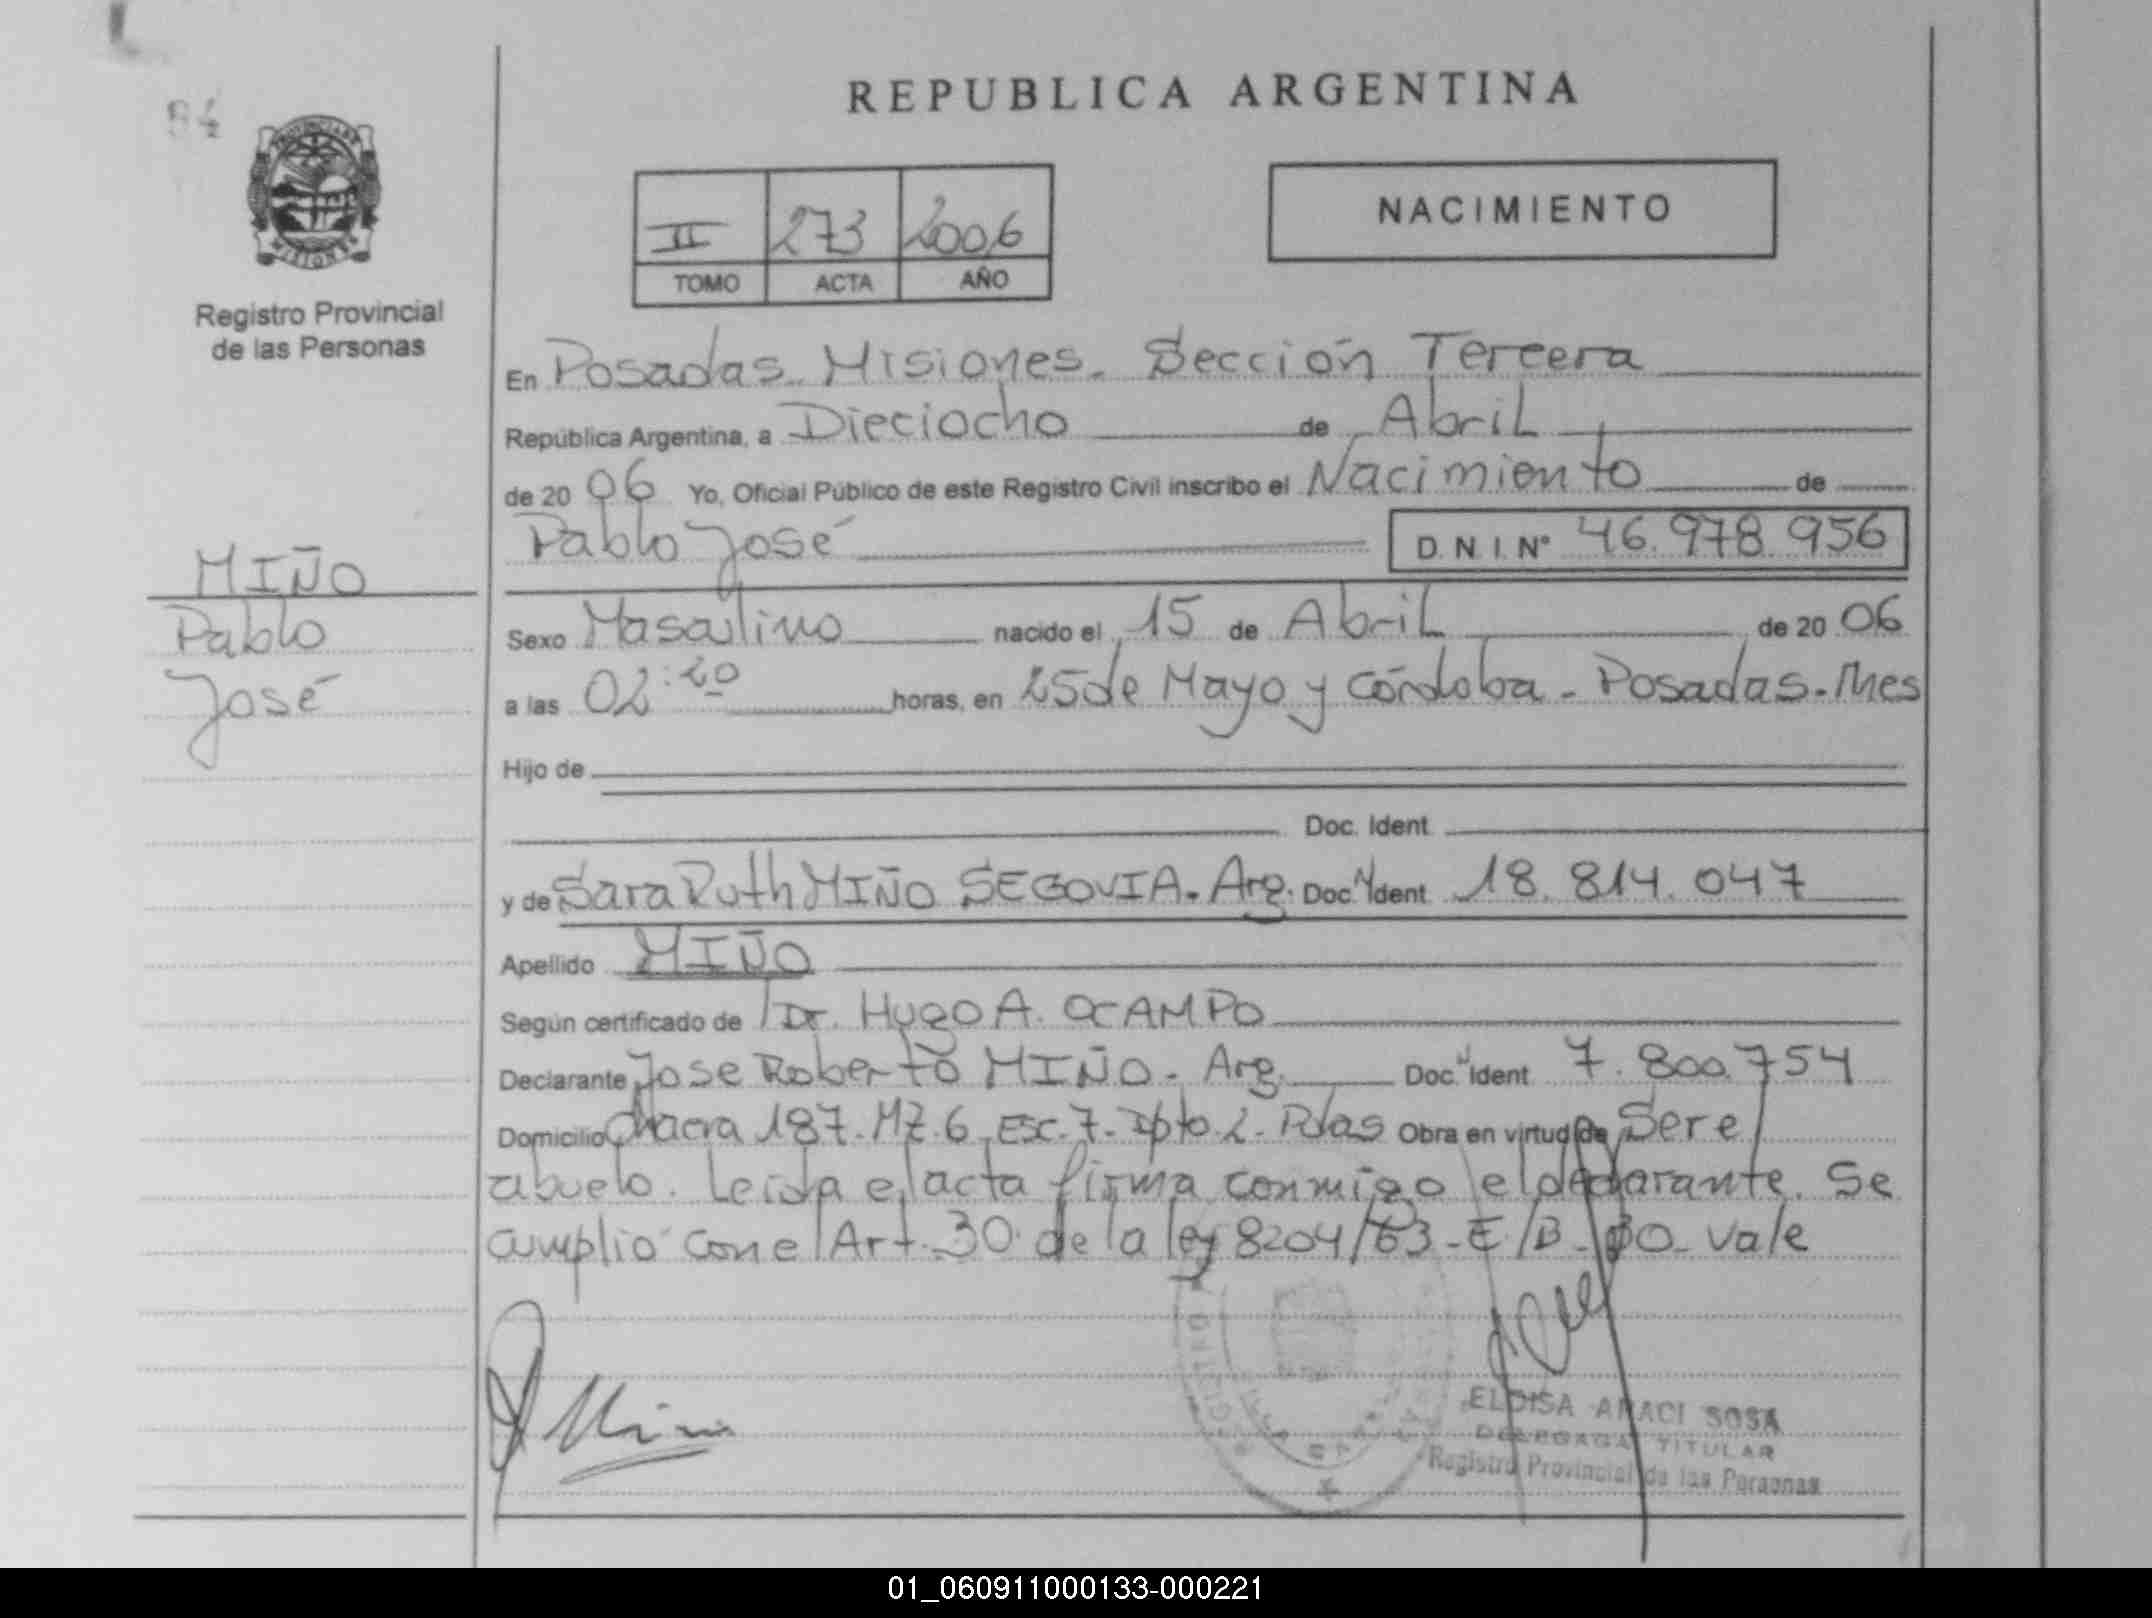 REPUBLICA ARGENTINA
84
II 273 2006
TOMO ACTA AÑO
NACIMIENTO
Registro Provincial
de las Personas
MIÑO
Pablo
José
En Posadas Misiones. Sección Tercera
República Argentina, a Dieciocho de Abril
de 20 06 Yo, Oficial Público de este Registro Civil inscribo el Nacimiento de
Pablo José D.N.I.Nº 46.978.956
Sexo Masculino nacido el 15 de Abril de 20 06
a las 02:20 horas, en 25 de Mayo y Córdoba - Posadas - Mnes
Hijo de
Doc. Ident
y de Sara Ruth MIÑO SEGOVIA. Arg. Doc. N Ident 18.814.047
Apellido MIÑO
Según certificado de Dr. Hugo A. OCAMPO
Declarante Jose Roberto MIÑO - Arg. Doc. N Ident 7.800.754
Domicilio Chacra 187. MZ. 6 Esc. 7 - Dpto. 2 - Pdas Obra en virtud de Ser el
abuelo. Leida el acta firma conmigo el declarante. Se
cumplió con el Art. 30 de la ley 8204/63 - E/B - 30 - Vale
ELOISA ARACI SOSA
DELEGADA TITULAR
Registro Provincial de las Personas
01_060911000133-000221